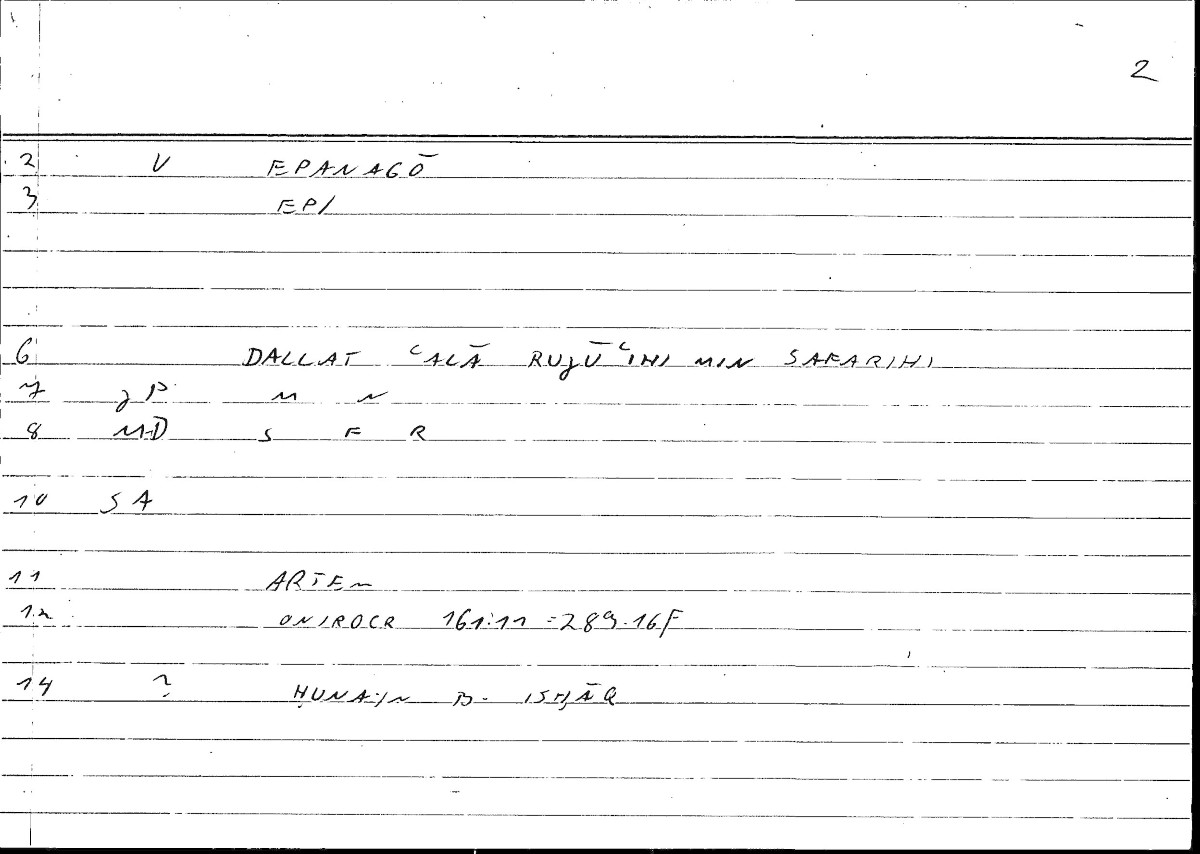 2
2 V EPANAGŌ
3 EPI
6 DALLAT ʿALĀ RUJŪʿIHI MIN SAFARIHI
7 JP M N
8 MD S F R
10 SA
11 ARTEM
12 ONIROCR 161:11 = 289.16F
14 ? ḤUNAIN B. ISḤĀQ